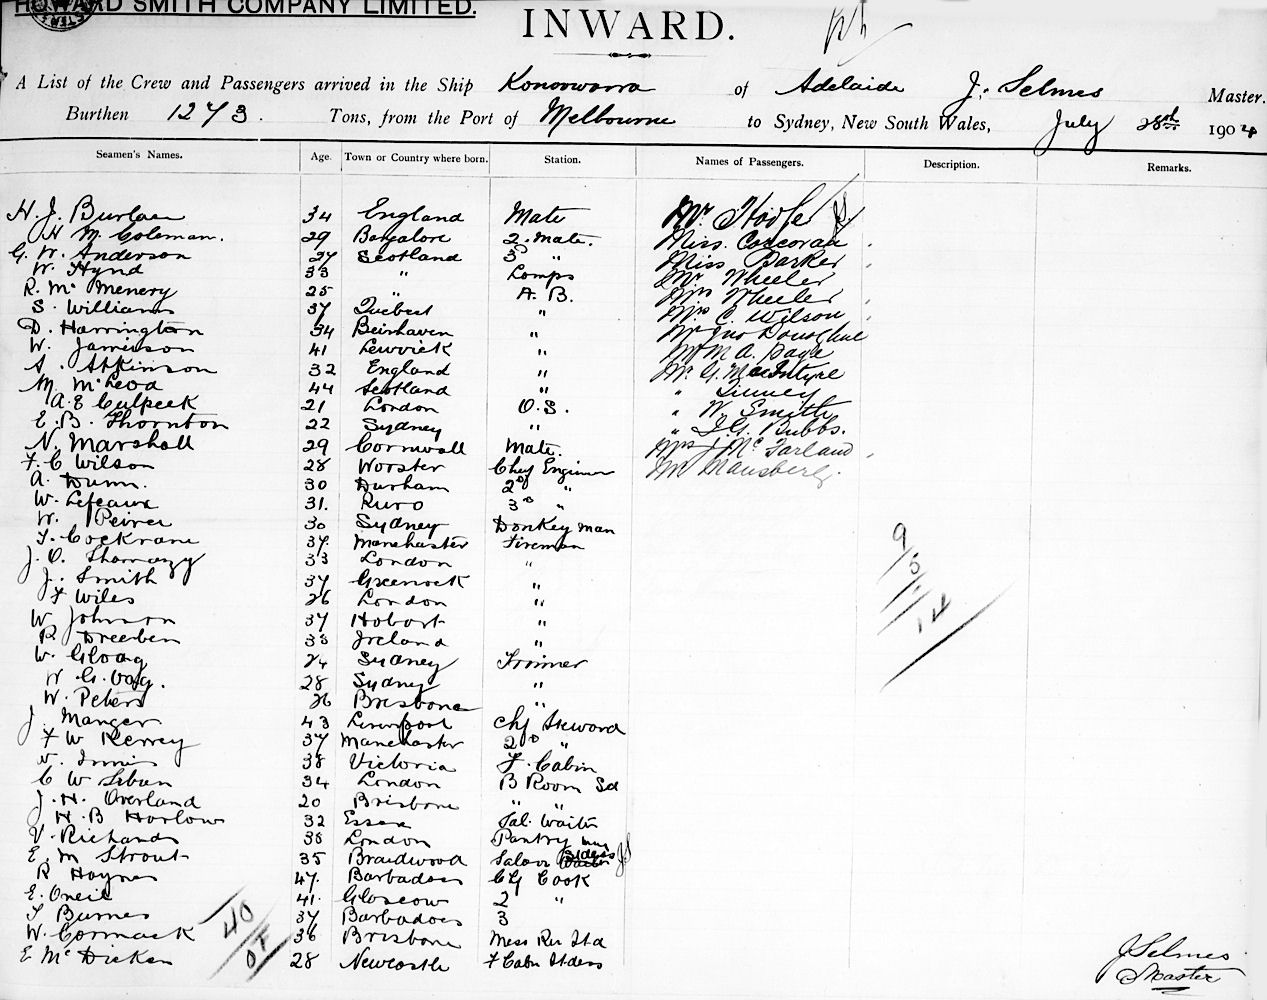 HOWARD SMITH COMPANY LIMITED.
INWARD.
A List of the Crew and Passengers arrived in the Ship Konoowarra of Adelaide J. Selmes Master.
Burthen 1273. Tons, from the Port of Melbourne to Sydney, New South Wales, July 28th 1904
Seamen's Names. Age. Town or Country where born. Station. Names of Passengers. Description. Remarks.
H. J. 34 England Mate Mr
H M. Coleman. 29 Bangalore 2. Mate. Miss. Corcoran
G. W. Anderson 27 Scotland 3D " Miss Barker
W. Hynd 33 " Lamps Mr Wheeler
R. Mc Menery 25 " A. B. Mrs Wheeler
S. Williams 37 " Mrs C. Wilson
D. Harrington 34 Beirhaven " Mr Jno Donoghue
W. Jamieson 41 Lewvick " M. A. Page
A. Atkinson 32 England " Mr G. MacIntyre
M. McLeod 44 Scotland " "
A. E Culpeck 21 London O. S. " W. Smith
E. B. Thornton 22 Sydney " " Bubbs.
N. Marshall 29 Cornwall Mate. Mrs J. Mc Farland
F. C Wilson 28 Worster Chf Engineer M Mansberg.
A. Dunn. 30 Durham 2D "
W. Lefeaux 31. Ruro 3D "
W. 30 Sydney Donkey man
T. Cockrane 37 Manchaster Fireman
J. O. 33 London "
J. Smith 37 Greenock "
F Wiles 26 London "
W Johnson 37 Hobart "
R. Dreeben 33 Ireland "
W. Gloag 24 Sydney Trimer
W. G. 28 Sydney "
W. Peters 26 Brisbane "
J. Manger 43 Liverpool Chf Steward
F W Kerrey 37 Manchaster 2D "
W. Innis 38 Victoria F. Cabin
C W 34 London B Room Sd
J. H. Overland 20 Brisbane " "
H. B Harlow 32 Essex Sal. Waiter
V. Richards 38 London Pantry man
E. M Strout 35 Braidwood Saloon JS
R Haynes 47. Barbadoes Chf Cook
E. Oneil 41. Glascow 2 "
T Burnes 37 Barbadoes 3
W. Cormack 36 Brisbane Mess Rm Std
E Mc Dicken 28 Newcastle F Cabn Stdess
9
5
14
40
J Selmes
Master